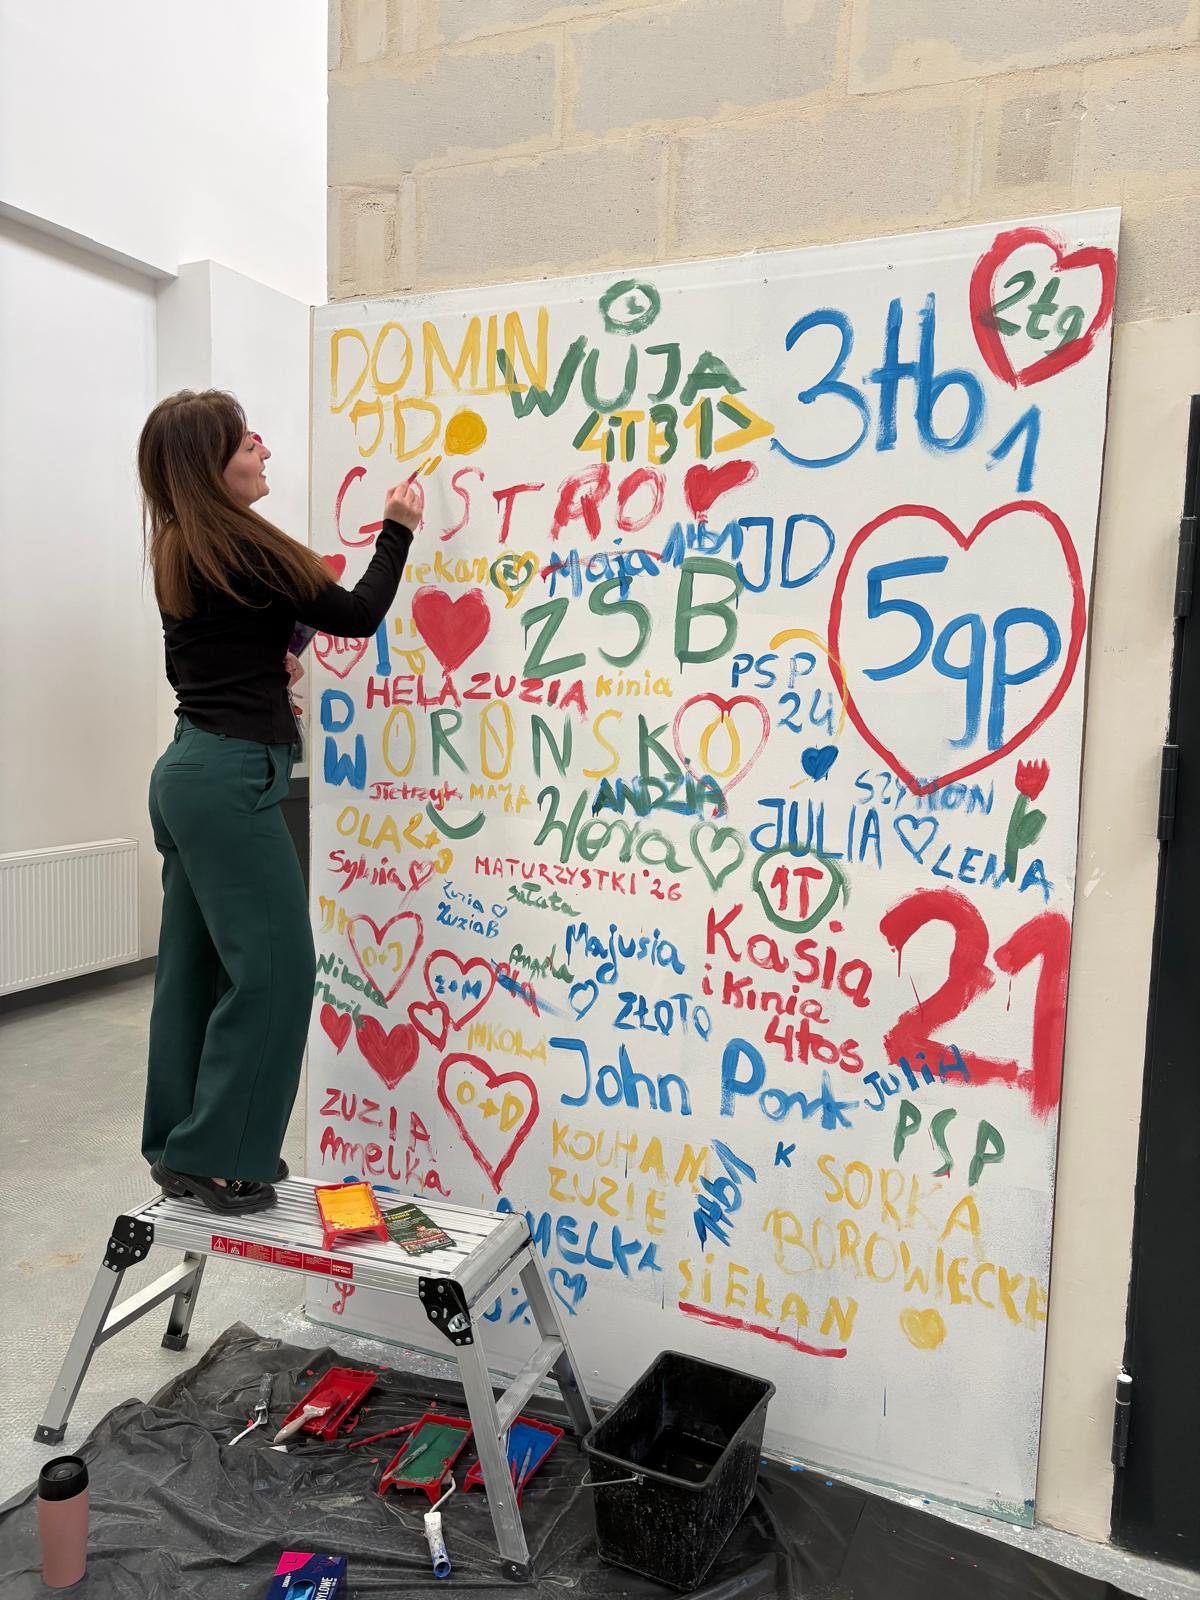 2tg
DOMIN
WUJA
3Hb1
JD
4TB1
GASTRO
Maja 1Hb1
JD
ZSB
5gp
PSP
24
HELA ZUZIA
Kinia
D
W
ORONSKO
MAJA
ANDZIA
SZYMON
OLA
Wera
JULIA
LENA
Sylwia
MATURZYSTKI '26
1T
Zuzia
ZuziaB
Sałata
Majusia
Kasia
i Kinia
4tos
21
O+J
Angela
Ola
Z+M
Nikola
ZŁOTO
NIKOLA
John Pork
Julia
O+D
PSP
ZUZIA
Amelka
KOCHAM
ZUZIE
1Hb1
K
SORKA
BOROWIECKA
AMELKA
SIEKAN